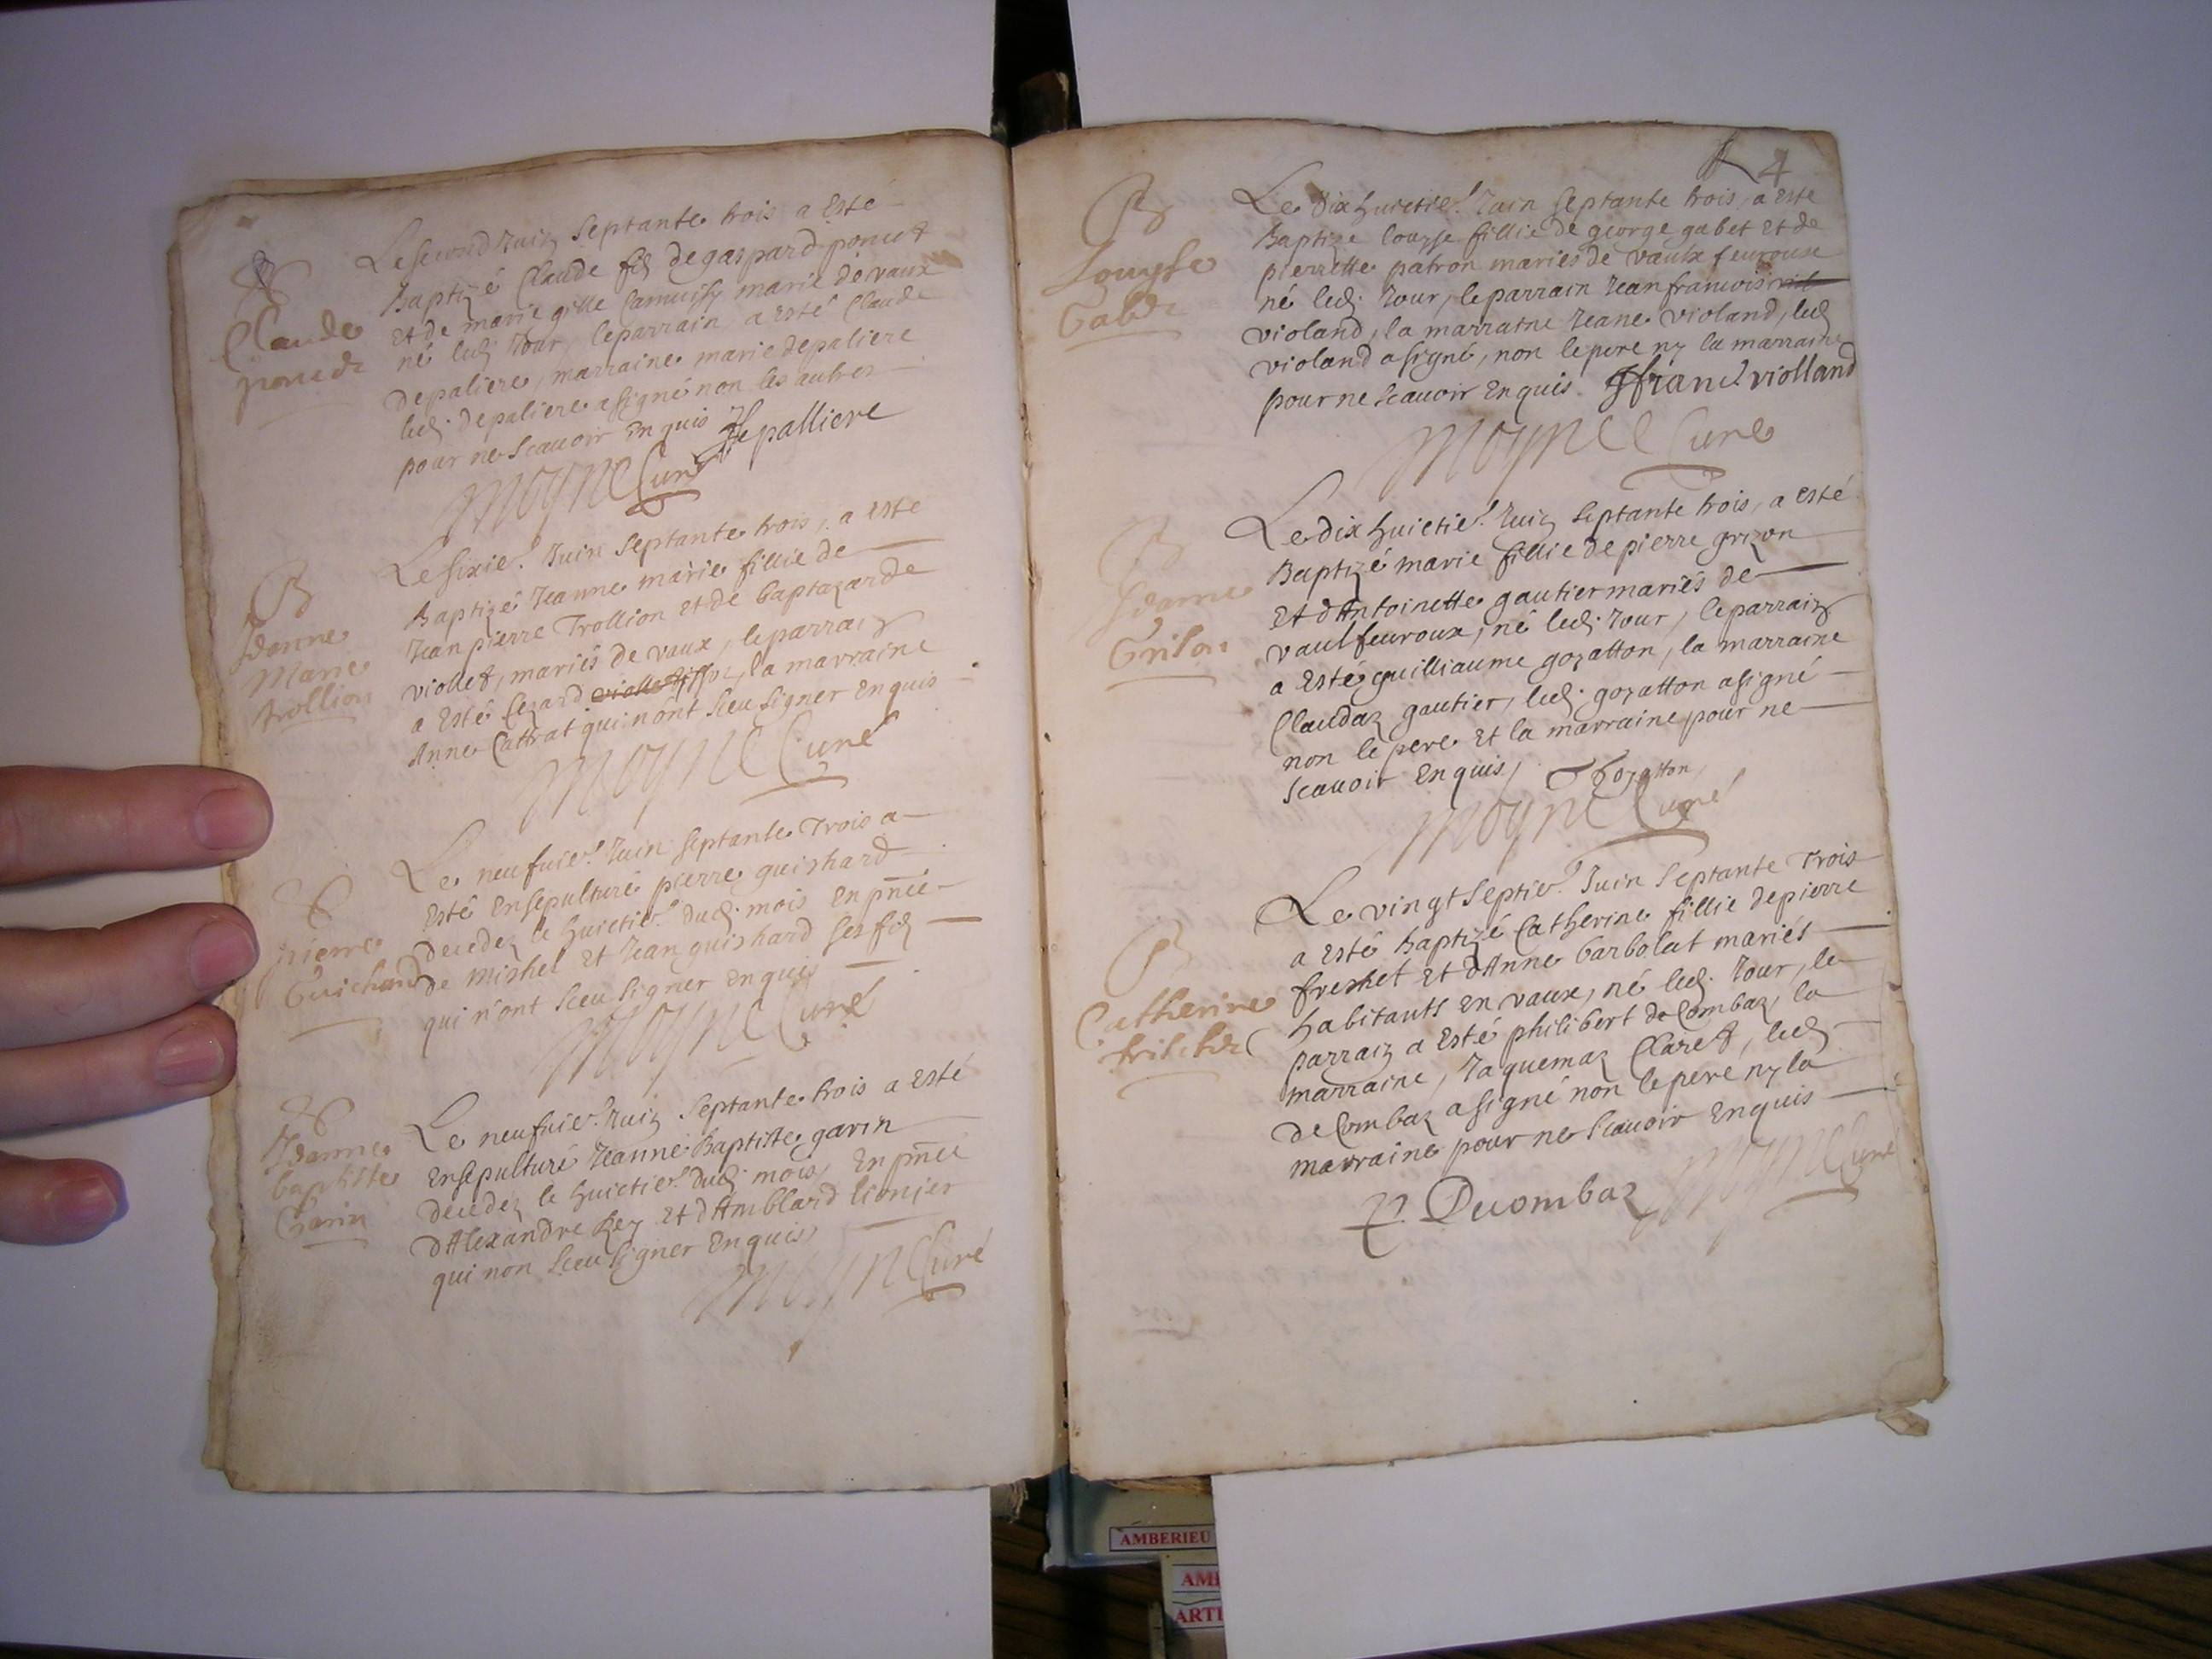 B
Claude
poncet
Le second Juin septante trois a esté
Baptizé Claude fils de gaspard poncet
et de marie gille mariés de vaux
né led. Jour, le parrain a esté Claude
depaliere, marraine marie depaliere
led. depaliere a signé non les autres
pour ne scauoir enquis Depalliere
Moyne Curé
B
Jeanne
Marie
trollion
Le sixie. Juin septante trois, a esté
Baptizé Jeanne marie fillie de
Jean pierre Trollion et de Baptazarde
viollet, mariés de vaux, le parrain
a esté Cezard, la marraine
Anne Cattrat qui n'ont sceu signer enquis
Moyne Curé
pierre
Guichard
Le neufuie. Juin septante Trois a
esté ensepulturé pierre guishard
decedez le huictie. dud. mois en pnce
de mishel et Jean guishard ses fils
qui n'ont sceu signer enquis
Moyne Curé
Jeanne
baptiste
Garin
Le neufuie. Juin septante trois a esté
ensepulturé Jeanne Baptiste garin
decedez le huictie. dud. mois, en pnce
d'Alexandre Rey et d'Amblard lionier
qui non sceu signer enquis
Moyne Curé
4
B
Louyse
Gabet
Le dix huictie. Juin septante trois, a esté
Baptize louyse fillie de george gabet et de
pierrette patron mariés de vaulx feuroux
né led. Jour, le parrain Jean francois
violand, la marraine Jeane violand, led.
violand a signé, non le pere ny la marraine
pour ne scauoir enquis. J franc. violland
Moyne Curé
B
Grison
Le dix huictie. Juin septante trois, a esté
Baptizé marie fillie de pierre grizon
et d'Antoinette gautier mariés de
vaulfeuroux, né led. Jour, le parrain
a esté guilliaume gozatton, la marraine
Claudaz gautier, led. gozatton a signé
non le pere et la marraine pour ne
scauoir enquis, Gozatton
Moyne Curé
B
Catherine
frischet
Le vingt septie. Juin septante Trois
a esté baptizé Catherine fillie de pierre
freshet et d'Anne barbolat mariés
habitants en vaux, né led. Jour, le
parrain a esté philibert deCombaz, la
marraine, Jaquemaz Claret, led.
deCombaz a signé non le pere ny la
marraine pour ne scauoir enquis
P. Decombaz Moyne Curé
AMBERIEU